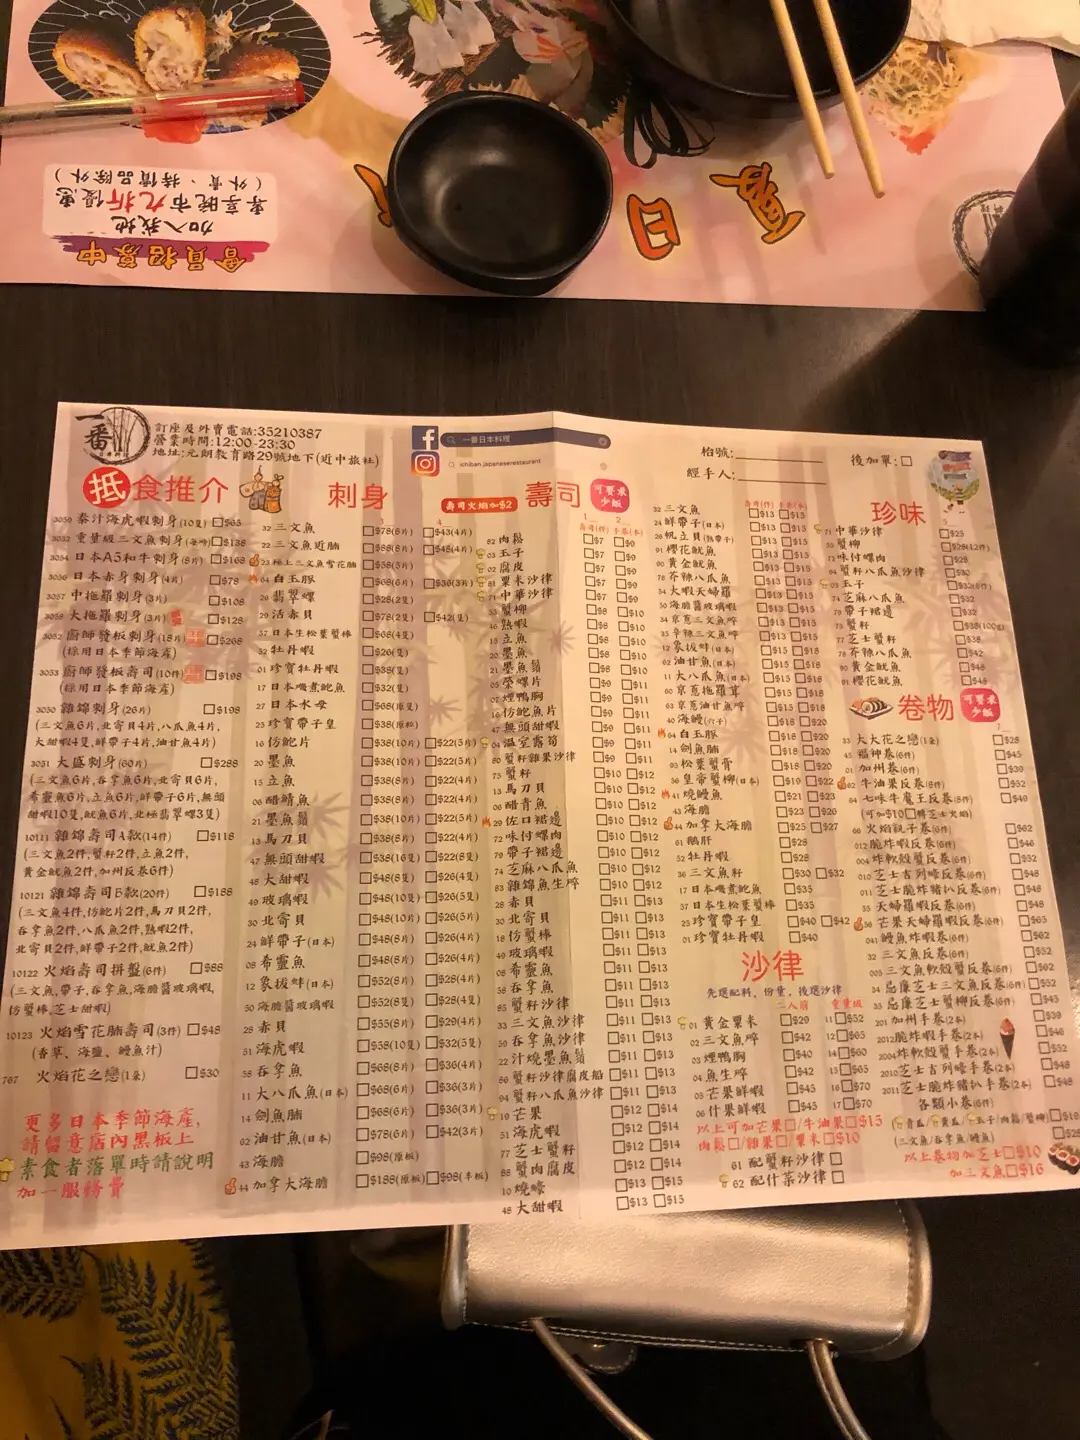 會員招募中
加入我地
專享晚市九折優惠
(外賣、特價品除外)
夏日
一番
訂座及外賣電話:35210387
營業時間:12:00-23:30
地址:元朗教育路29號地下(近中旅社)
一番日本料理
ichiban.japaneserestaurant
枱號:
經手人:
後加單:
抵食推介
3032 重量級三文魚刺身 $138
3054 日本A5和牛刺身(8片) $168
3056 日本赤身刺身(4片) $78
3057 中拖羅刺身(3片) $108
3058 大拖羅刺身(3片) $128
3052 廚師發板刺身(18片) $268
(採用日本季節海產)
3053 廚師發板壽司(10件) $198
(採用日本季節海產)
3050 雜錦刺身(26片) $198
(三文魚6片,北寄貝4片,八爪魚4片,
大甜蝦4隻,鮮帶子4片,油甘魚4片)
3051 大盛刺身(60片) $288
(三文魚6片,吞拿魚6片,北寄貝6片,
希靈魚6片,立魚6片,鮮帶子6片,無頭
甜蝦10隻,魷魚6片,北極翡翠螺3片)
10111 雜錦壽司A款(14件) $118
(三文魚2件,蟹籽2件,立魚2件,
黃金魷魚2件,加州反卷6件)
10121 雜錦壽司B款(20件) $188
(三文魚4件,仿鮑片2件,馬刀貝2件,
吞拿魚2件,八爪魚2件,熟蝦2件,
北寄貝2件,鮮帶子2件,魷魚2件)
10122 火焰壽司拼盤(6件) $88
(三文魚,帶子,吞拿魚,海膽醬玻璃蝦,
仿蟹棒,芝士甜蝦)
10123 火焰雪花腩壽司(3件) $48
(香草、海鹽、鰻魚汁)
767 火焰花之戀(1条) $30
更多日本季節海產,
請留意店內黑板上
素食者落單時請說明
加一服務費
刺身
32 三文魚 $78(8片) $43(4片)
22 三文魚近腩 $88(8片) $48(4片)
04 白玉豚 $68(6片) $36(3片)
26 翡翠螺 $28(2隻)
29 活赤貝 $78(2隻) $42(隻)
37 日本生松葉蟹棒 $68(4隻)
52 牡丹蝦 $26(隻)
01 珍寶牡丹蝦 $38(隻)
17 日本磯煮鮑魚 $32(隻)
27 日本水母
25 珍寶帶子皇
16 仿鮑片 $38(10片) $22(5片)
20 墨魚 $38(10片) $22(5片)
15 立魚 $38(8片) $22(4片)
06 醋鯖魚 $38(8片) $22(4片)
21 墨魚鬚 $38(10片) $22(5片)
13 馬刀貝 $38(8片) $22(4片)
47 無頭甜蝦 $38(16隻) $22(8隻)
48 大甜蝦 $48(8隻) $26(4隻)
49 玻璃蝦 $48(10隻) $26(5隻)
30 北寄貝 $48(10片) $26(5片)
24 鮮帶子(日本) $48(8片) $26(4片)
08 希靈魚 $48(8片) $26(4片)
12 象拔蚌(日本) $52(8片) $28(4片)
50 海膽醬玻璃蝦 $52(8隻) $28(4隻)
28 赤貝 $55(8片) $29(4片)
51 海虎蝦 $58(10隻) $32(5隻)
58 吞拿魚 $68(8片) $36(4片)
11 大八爪魚(日本) $68(6片) $36(3片)
14 劍魚腩 $68(6片) $36(3片)
62 油甘魚(日本) $78(6片) $42(3片)
43 海膽 $98(原板)
44 加拿大海膽 $188(原板) $98(半板)
壽司火焰加$2
壽司
可要求少飯
壽司(件) 手卷(本)
82 肉鬆 $7 $9
03 玉子 $7 $9
02 腐皮 $7 $9
81 粟米沙律 $7 $9
71 中華沙律 $7 $9
55 蟹柳 $8 $10
46 熟蝦 $8 $10
15 立魚 $8 $10
20 墨魚 $8 $10
21 墨魚鬚 $8 $10
05 螢螺片 $9 $11
07 煙鴨胸 $9 $11
16 仿鮑魚片 $9 $11
47 無頭甜蝦 $9 $11
04 溫室露筍 $9 $11
80 蟹籽雜果沙律 $9 $11
75 蟹籽 $10 $12
13 馬刀貝 $10 $12
06 醋青魚 $10 $12
29 佐口裙邊 $10 $12
72 味付螺肉 $10 $12
79 帶子裙邊 $10 $12
74 芝麻八爪魚 $10 $12
83 雜錦魚生啐 $10 $12
28 赤貝 $11 $13
30 北寄貝 $11 $13
18 仿蟹棒 $11 $13
49 玻璃蝦 $11 $13
08 希靈魚 $11 $13
58 吞拿魚 $11 $13
85 蟹籽沙律 $11 $13
33 三文魚沙律 $11 $13
59 吞拿魚沙律 $11 $13
22 汁燒墨魚鬚 $11 $13
86 蟹籽沙律腐皮船 $11 $13
94 蟹籽八爪魚沙律 $11 $13
19 芒果 $12 $14
51 海虎蝦 $12 $14
77 芝士蟹籽 $12 $14
88 蟹肉腐皮 $12 $14
10 燒蠔 $13 $15
48 大甜蝦 $13 $15
壽司(件) 手卷(本)
32 三文魚 $13 $15
24 鮮帶子(日本) $13 $15
26 帆立貝(熟帶子) $13 $15
91 櫻花魷魚 $13 $15
90 黃金魷魚 $13 $15
78 芥辣八爪魚 $13 $15
34 大蝦天婦羅 $13 $15
50 海膽醬玻璃蝦 $13 $15
34 京蔥三文魚啐 $13 $15
35 辛辣三文魚啐 $13 $15
12 象拔蚌(日本) $15
62 油甘魚(日本)
11 大八爪魚(日本)
60 京蔥拖羅茸
63 京蔥油甘魚啐
40 海鰻(穴子) $18 $20
04 白玉豚 $18 $20
14 劍魚腩 $18 $20
93 松葉蟹膏 $18 $20
56 皇帝蟹柳(日本) $19 $22
41 燒鰻魚 $21 $23
43 海膽 $23 $25
44 加拿大海膽 $25 $27
61 鵝肝 $28
52 牡丹蝦 $28
36 三文魚籽 $30 $32
17 日本磯煮鮑魚 $35
37 日本生松葉蟹棒 $35
25 珍寶帶子皇 $40 $42
01 珍寶牡丹蝦 $40
沙律
先選配料,份量,後選沙律
二人前 重量級
01 黃金粟米 $29 11 $52
02 三文魚啐 $40 12 $60
03 煙鴨胸 $40 14 $60
04 魚生啐 $42 15 $65
05 芒果鮮蝦 $45 16 $70
06 什果鮮蝦 $45 17 $70
以上可加芒果/牛油果$15
肉鬆/雜果/粟米$10
61 配蟹籽沙律
62 配什菜沙律
珍味
71 中華沙律 $25
55 蟹柳 $28(12件)
72 味付螺肉 $28
94 蟹籽八爪魚沙律 $30
03 玉子
74 芝麻八爪魚
79 帶子裙邊
75 蟹籽 $38(100g)
77 芝士蟹籽 $38
78 芥辣八爪魚 $42
90 黃金魷魚 $48
91 櫻花魷魚 $48
卷物
可要求少飯
33 大大花之戀(1条) $28
45 福神卷(6件) $45
01 加州卷(6件) $39
02 牛油果反卷(8件) $52
64 七味牛魔王反卷(8件) $49
(可加$10轉芝士火焰)
66 火焰親子卷(6件) $62
012 脆炸蝦反卷(6件) $46
004 炸軟殼蟹反卷(6件) $52
010 芝士吉列蠔反卷(6件) $48
011 芝士脆炸豬扒反卷(6件) $48
35 天婦羅蝦反卷(6件) $48
36 芒果天婦羅蝦反卷(6件) $65
041 鰻魚炸蝦卷(6件) $52
32 三文魚反卷(6件) $52
005 三文魚軟殼蟹反卷(6件) $62
34 忌廉芝士三文魚反卷(6件) $52
35 忌廉芝士蟹柳反卷(6件) $45
201 加州手卷(2本) $39
2012 脆炸蝦手卷(2本) $46
2004 炸軟殼蟹手卷(2本) $52
2010 芝士吉列蠔手卷(2本) $48
2011 芝士脆炸豬扒手卷(2本) $48
各類小卷(6件)
(青瓜/黃瓜/玉子/肉鬆/蟹柳)
(三文魚/吞拿魚/鰻魚)
以上卷物加芝士$10
加三文魚$16